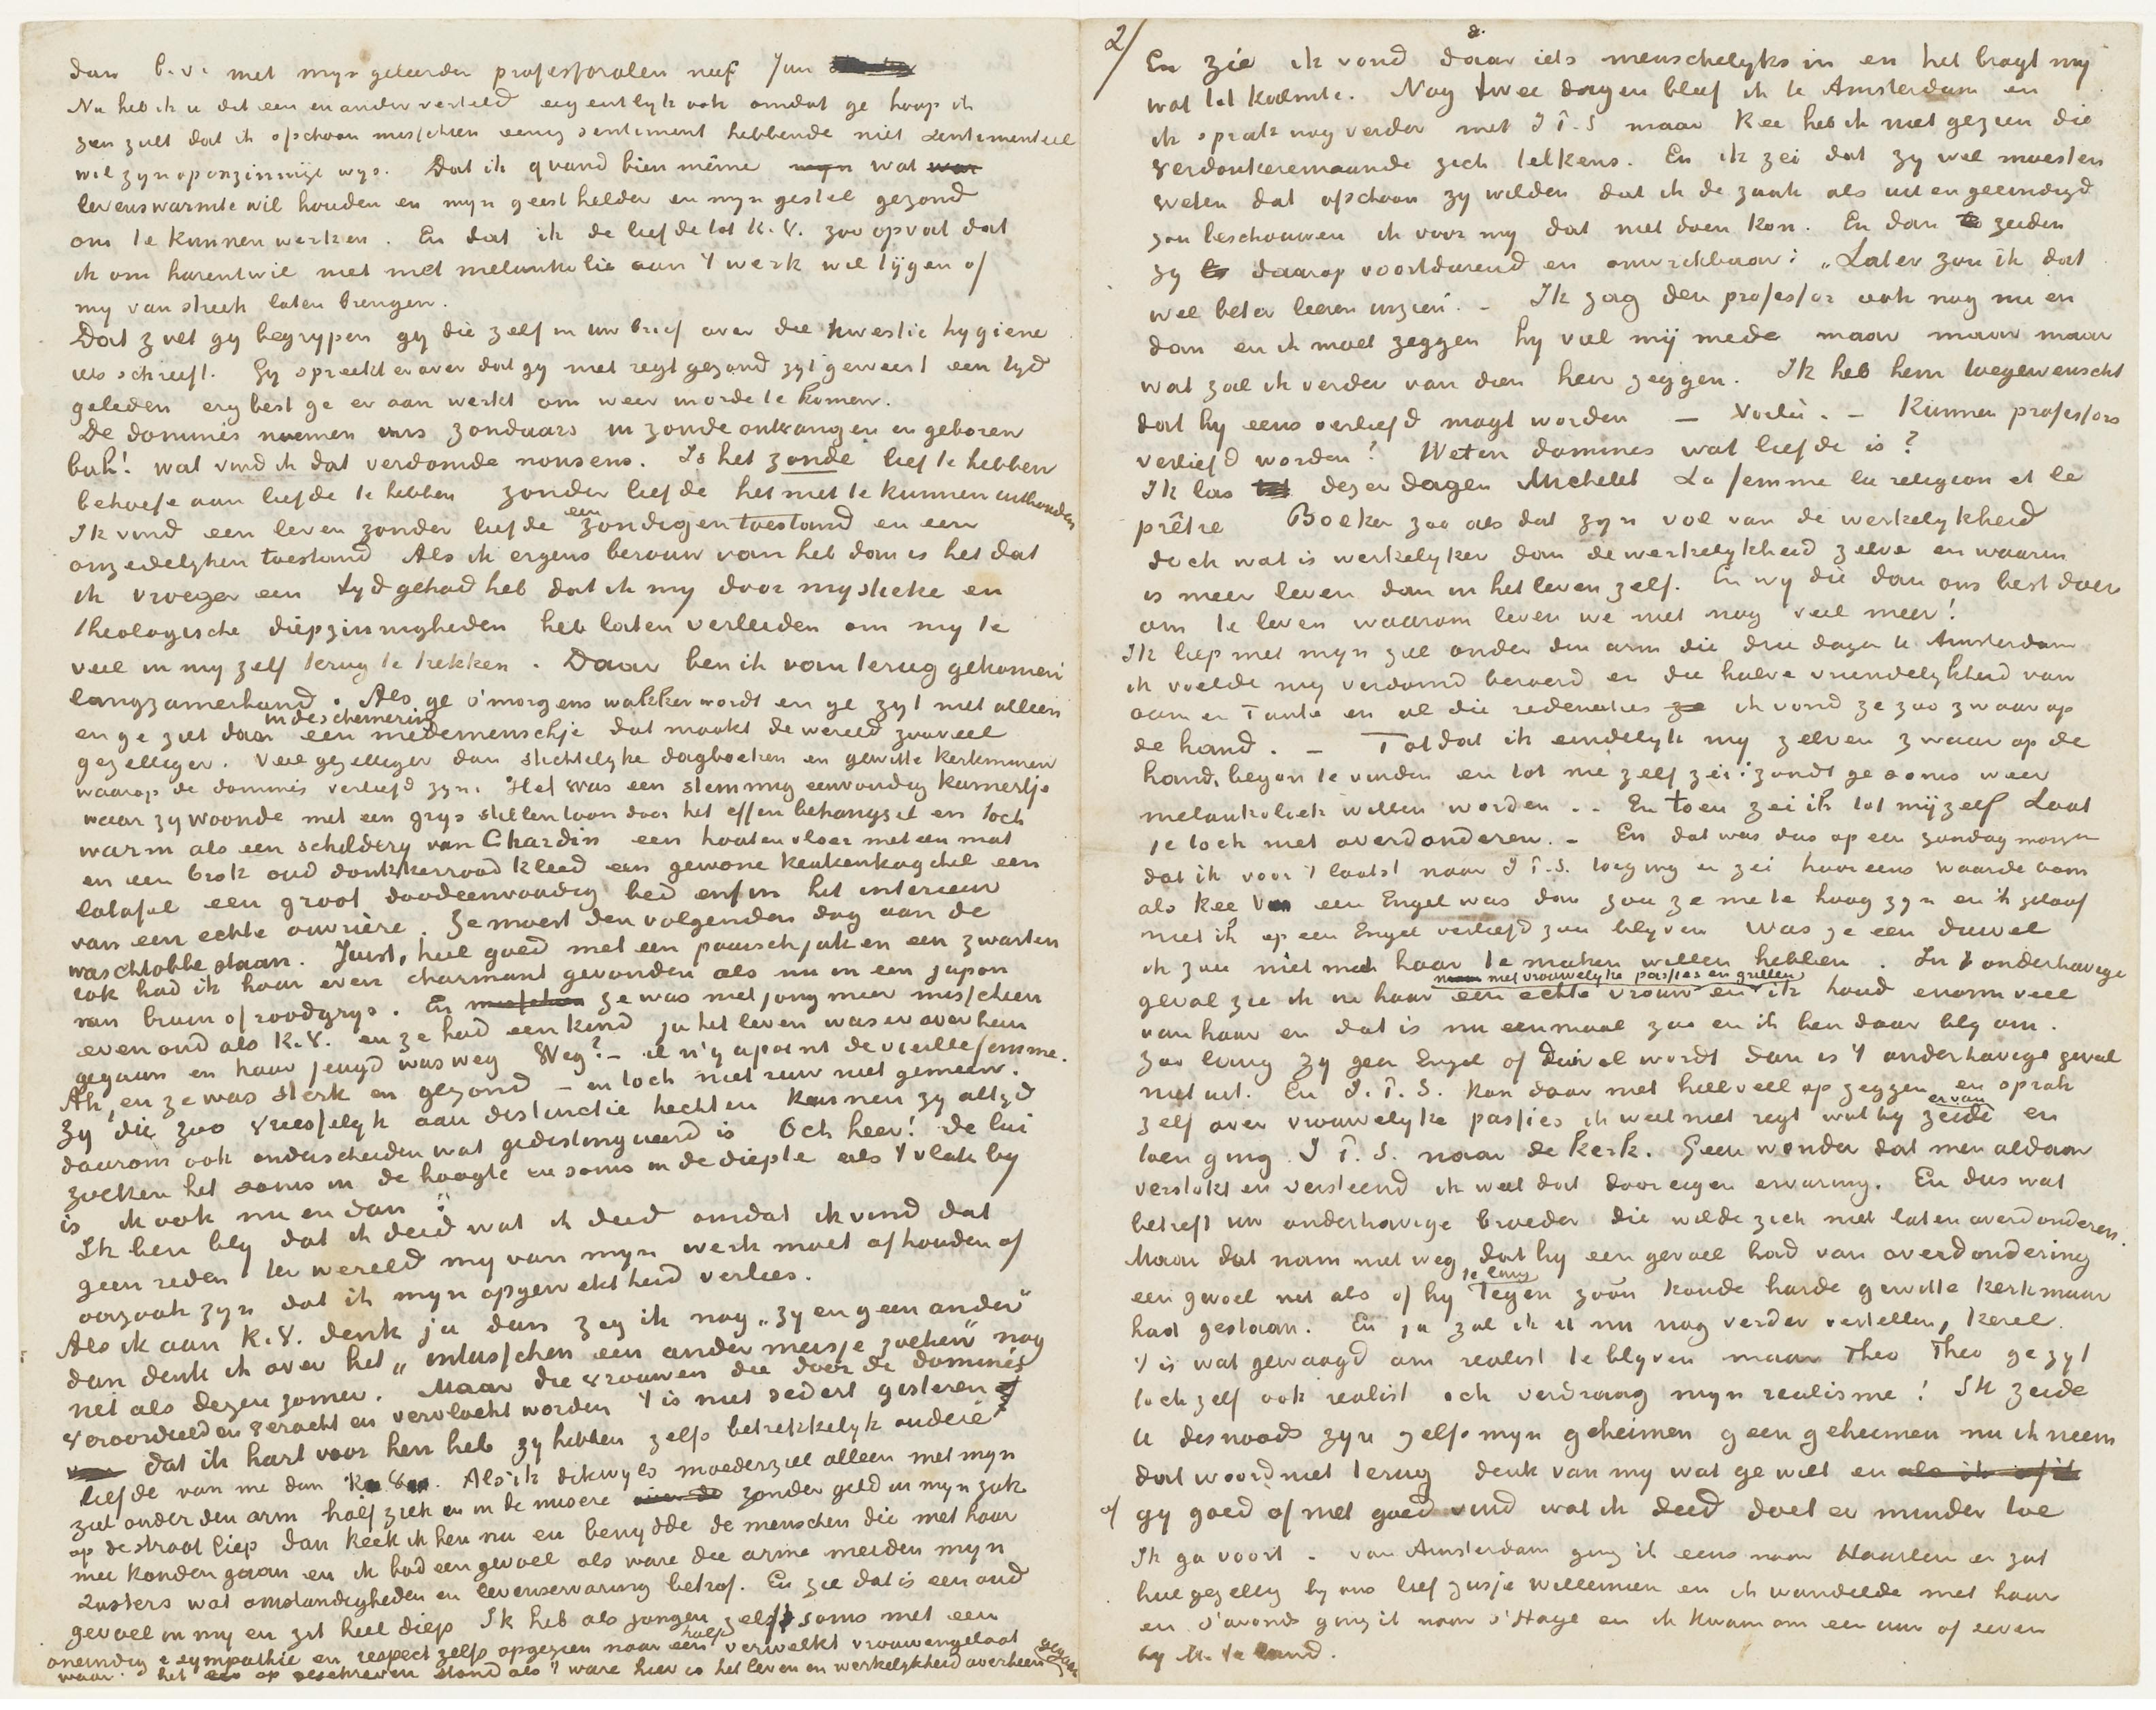 dan b.v. met mijn geleerden professoralen neef Jan
Nu heb ik u dit een en ander verteld eigentlyk ook omdat ge hoop ik
zien zult dat ik ofschoon misschien eenig sentiment hebbende niet sentimenteel
wil zyn op onzinnige wys. Dat ik quand bien même wat
levenswarmte wil houden en myn geest helder en myn gestel gezond
om te kunnen werken. En dat ik de liefde tot K.V. zoo opvat dat
ik om harentwil niet met melankolie aan 't werk wil tijgen of
my van streek laten brengen.
Dat zult gy begrypen gy die zelf in uw brief over die kwestie hygiene
iets schreeft. Gy spreekt er over dat gy niet regt gezond zyt geweest een tyd
geleden erg best ge er aan werkt om weer in orde te komen.
De dominés noemen ons zondaars in zonde ontvangen en geboren
bah! wat vind ik dat verdomde nonsens. Is het zonde lief te hebben
behoefte aan liefde te hebben zonder liefde het niet te kunnen uithouden
Ik vind een leven zonder liefde een zondigen toestand en een
onzedelyken toestand Als ik ergens berouw van heb dan is het dat
ik vroeger een tyd gehad heb dat ik my door mystieke en
theologische diepzinnigheden heb laten verleiden om my te
veel in my zelf terug te trekken. Daar ben ik van terug gekomen
langzamerhand. Als ge s'morgens wakker wordt en ge zyt niet alleen
en ge ziet daar in de schemering een medemenschje dat maakt de wereld zooveel
gezelliger. Veel gezelliger dan stichtelyke dagboeken en gewitte kerkmuren
waarop de dominés verliefd zyn. Het was een stemmig eenvoudig kamertje
waar zy woonde met een grys stillen toon door het effen behangsel en toch
warm als een schildery van Chardin een houten vloer met een mat
en een brok oud donkkerrood kleed een gewone keukenkagchel een
latafel een groot doodeenvoudig bed enfin het interieur
van een echte ouvrière. Ze moest den volgenden dag aan de
waschtobbe staan. Juist, heel goed met een paarsch jak en een zwarten
rok had ik haar even charmant gevonden als nu in een japon
van bruin of roodgrys. En ze was niet jong meer misschien
even oud als K.V. en ze had een kind ja het leven was er over heen
gegaan en haar jeugd was weg Weg? – il n'y a point de vieille femme.
Ah, en ze was sterk en gezond – en toch niet ruw niet gemeen.
Zy die zoo vreesselyk aan distinctie hechten kunnen zy altyd
daarom ook onderscheiden wat gedistingueerd is Och heer! de lui
zoeken het soms in de hoogte en soms in de diepte als 't vlak by
is ik ook nu en dan.
Ik ben bly dat ik deed wat ik deed omdat ik vind dat
geen reden ter wereld my van myn werk moet afhouden of
oorzaak zyn dat ik myn opgewektheid verlies.
Als ik aan K.V. denk ja dan zeg ik nog „zy en geen ander"
dan denk ik over het „intusschen een ander meisje zoeken" nog
net als dezen zomer. Maar die vrouwen die door de dominés
veroordeeld en veracht en vervloekt worden 't is niet sedert gisteren
dat ik hart voor hen heb zy hebben zelfs betrekkelyk oudere
liefde van me dan K. V. Als ik dikwyls moederziel alleen met myn
ziel onder den arm half ziek en in de misere zonder geld in myn zak
op de straat liep dan keek ik hen na en benydde de menschen die met haar
mee konden gaan en ik had een gevoel als ware die arme meiden myn
zusters wat omstandigheden en levenservaring betrof. En zie dat is een oud
gevoel in my en zit heel diep Ik heb als jongen zelfs soms met een
oneindige sympathie en respect zelfs opgezien naar een half verwelkt vrouwengelaat
waar het op geschreven stond als 't ware hier is het leven en werkelykheid overheen gegaan
2/
En zie ik vond daar iets menschelyks in en het bragt my
wat tot kalmte. Nog twee dagen bleef ik te Amsterdam en
ik sprak nog verder met J.P.S maar Kee heb ik niet gezien die
verdonkeremaande zich telkens. En ik zei dat zy wel moesten
weten dat ofschoon zy wilden dat ik de zaak als uit en geeindigd
zou beschouwen ik voor my dat niet doen kon. En dan zeiden
zy daarop voortdurend en onwrikbaar: „Later zou ik dat
wel beter leeren inzien". – Ik zag den professor ook nog nu en
dan en ik moet zeggen hy viel mij mede maar maar maar
wat zal ik verder van dien heer zeggen. Ik heb hem toegewenscht
dat hy eens verliefd mogt worden – Voilà. – Kunnen professors
verliefd worden? Weten dominés wat liefde is?
Ik las dezer dagen Michelet La femme la religion et le
prêtre Boeken zoo als dat zyn vol van de werkelykheid
doch wat is werkelyker dan de werkelykheid zelve en waarin
is meer leven dan in het leven zelf. En wy die dan ons best doen
om te leven waarom leven we niet nog veel meer!
Ik liep met myn ziel onder den arm die drie dagen te Amsterdam
ik voelde my verdomd beroerd en die halve vriendelykheid van
oom en Tante en al die redenaties ik vond ze zoo zwaar op
de hand. – Totdat ik eindelyk my zelven zwaar op de
hand begon te vinden en tot me zelf zei: zoudt ge soms weer
melankoliek willen worden. – En toen zei ik tot mijzelf Laat
je toch niet overdonderen. – En dat was dus op een zondag morgen
dat ik voor 't laatst naar J.P.S. toeging en zei hoor eens waarde oom
als Kee een Engel was dan zou ze me te hoog zyn en ik geloof
niet ik op een Engel verliefd zou blyven Was ze een duivel
ik zou niet met haar te maken willen hebben. In 't onderhavige
geval zie ik in haar een echte vrouw met vrouwelyke passies en grillen en ik houd enorm veel
van haar en dat is nu eenmaal zoo en ik ben daar bly om.
Zoo lang zy geen Engel of Duivel wordt dan is 't onderhavige geval
niet uit. En J.P.S. kon daar niet heel veel op zeggen en sprak
zelf over vrouwelyke passies ik weet niet regt wat hy er van zeide en
toen ging J.P.S. naar de kerk. Geen wonder dat men aldaar
verstokt en versteend ik weet dat door eigen ervaring. En dus wat
betreft uw onderhavige broeder die wilde zich niet laten overdonderen.
Maar dat nam niet weg dat hy een gevoel had van overdondering
een gevoel net als of hy te lang tegen zoo'n koude harde gewitte kerkmuur
had gestaan. En ja zal ik u nu nog verder vertellen, kerel.
't is wat gewaagd om realist te blyven maar Theo Theo ge zyt
toch zelf ook realist och verdraag myn realisme! Ik zeide
u desnoods zyn zelfs myn geheimen geen geheimen nu ik neem
dat woord niet terug denk van my wat ge wilt en
of gy goed of niet goed vind wat ik deed doet er minder toe
Ik ga voort – van Amsterdam ging ik eens naar Haarlem en zat
heel gezellig by ons lief zusje Willemien en ik wandelde met haar
en s'avonds ging ik naar s'Hage en ik kwam om een uur of zeven
by M. te land.